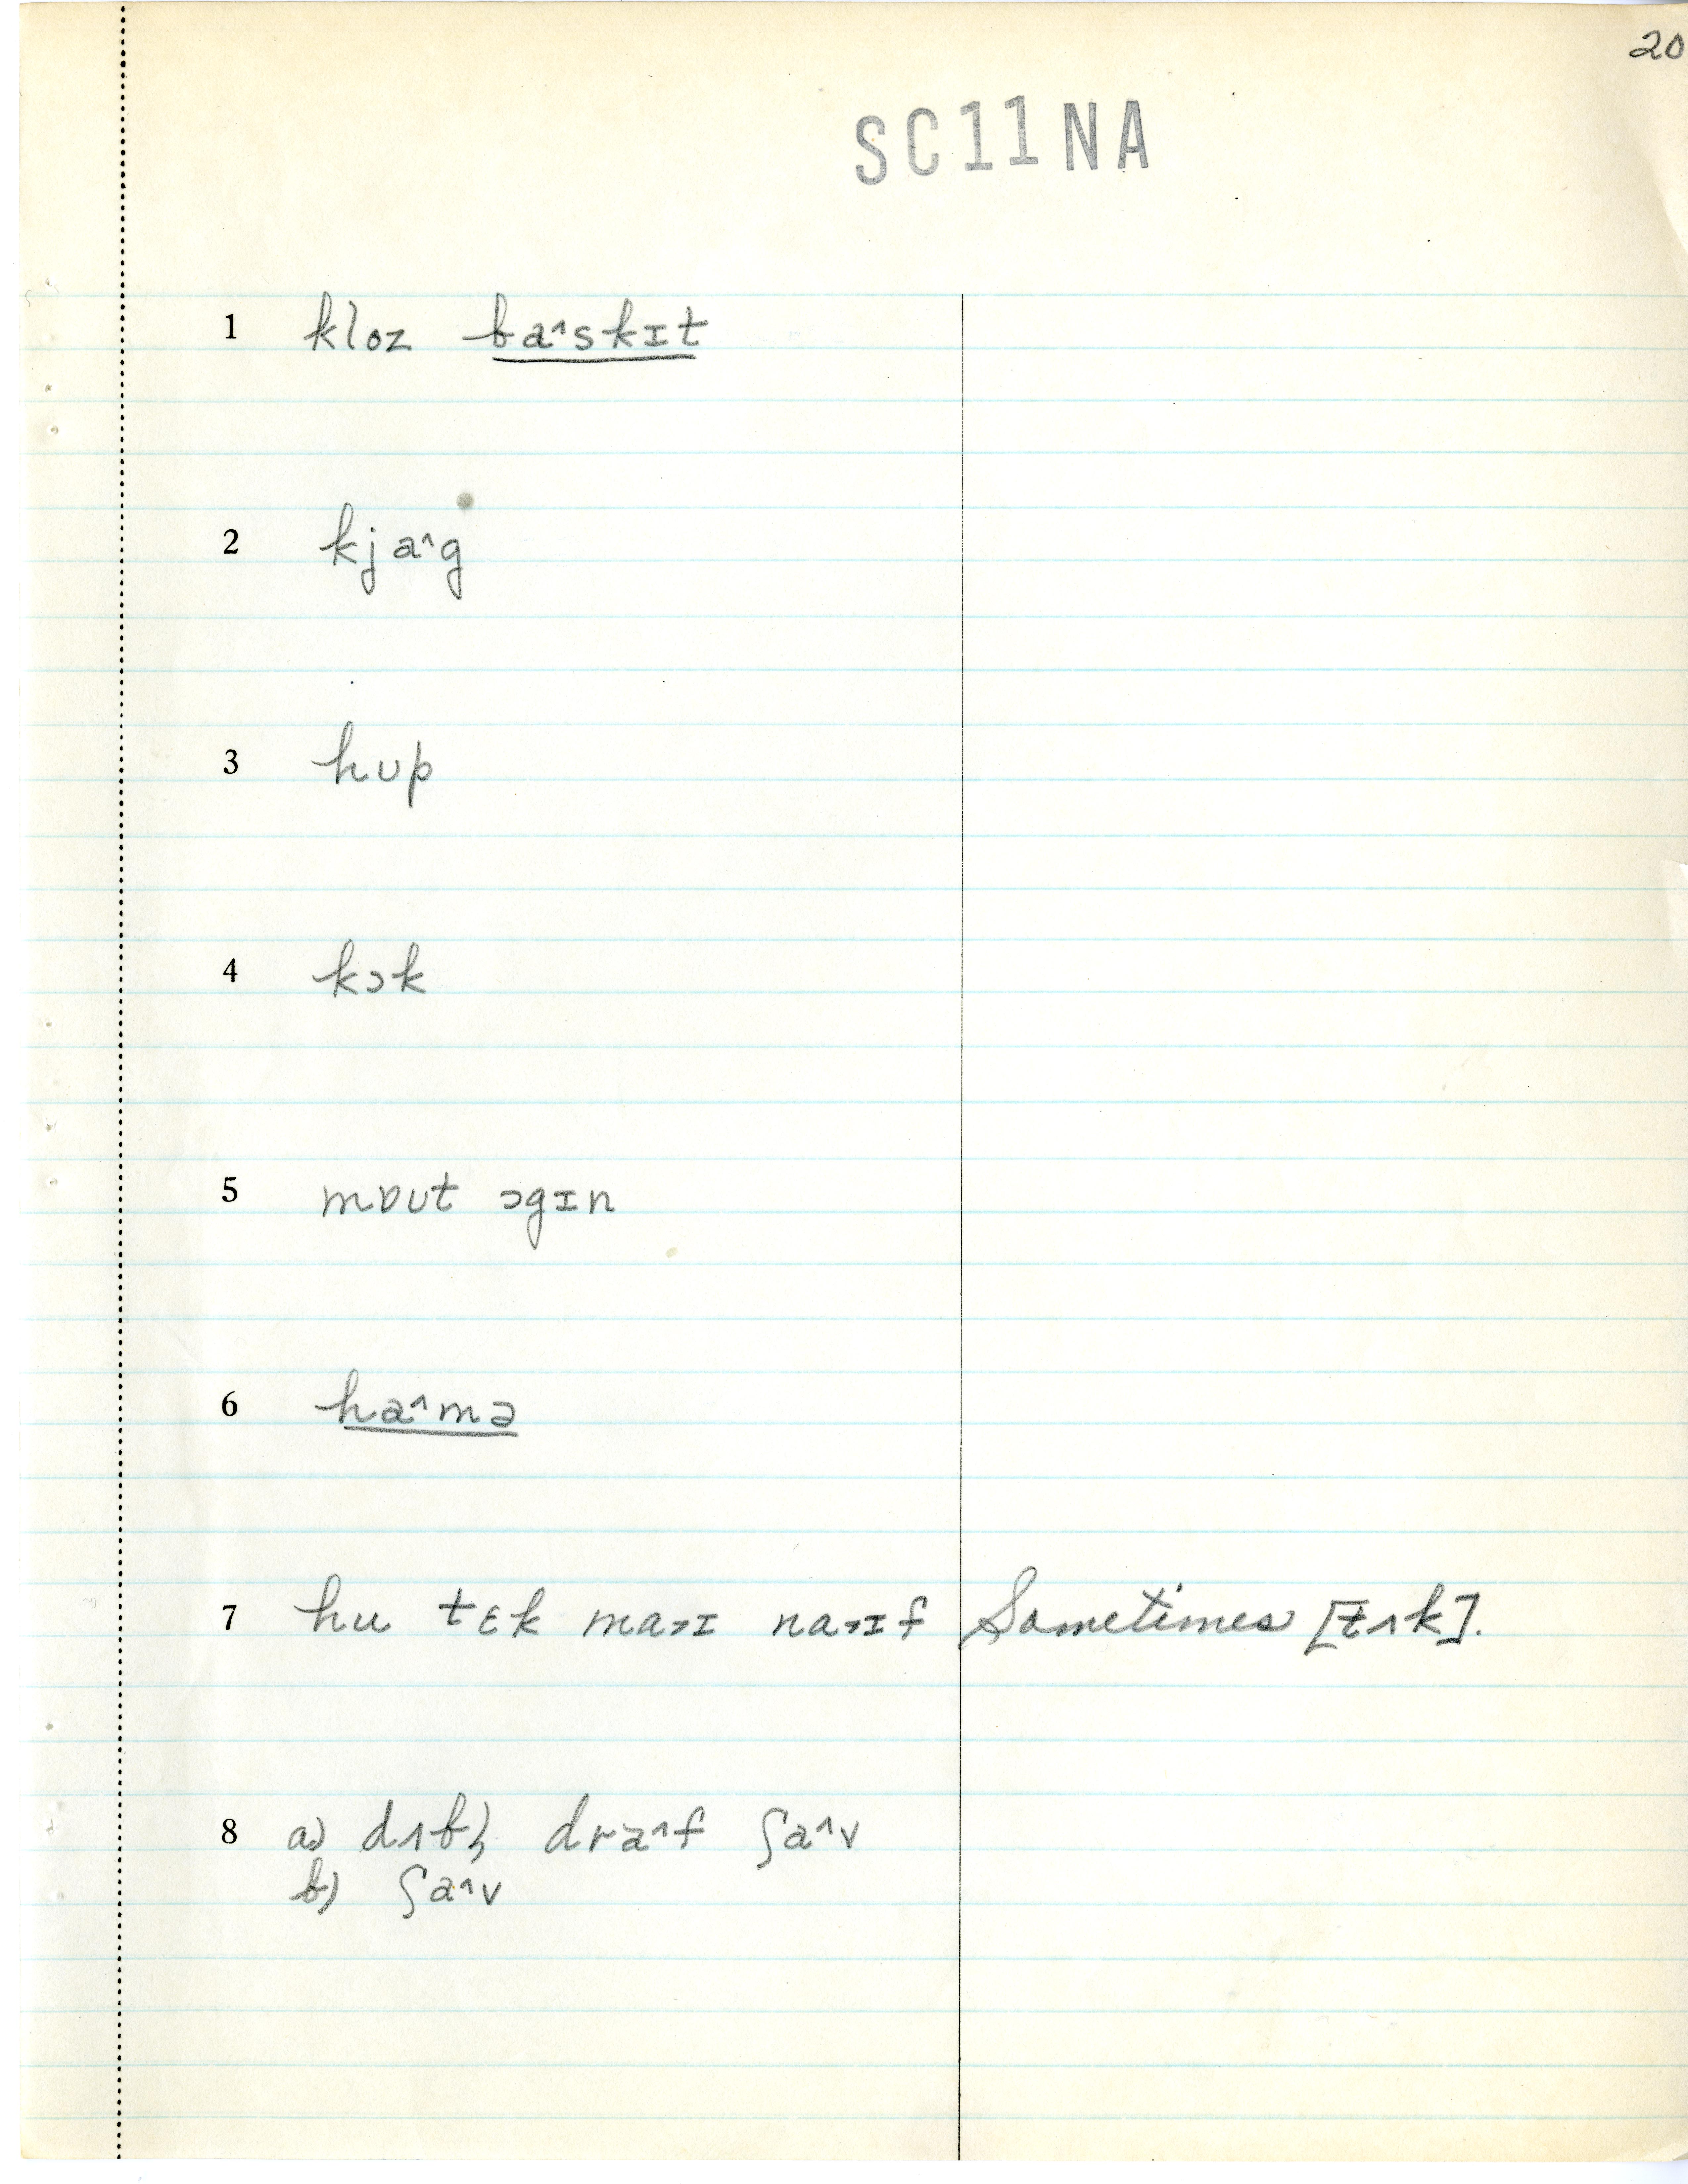 20
SC11NA
1 kloz ba^skɪt
2 kja^g
3 hʊp
4 kɔk
5 mɒʊt ɔgɪn
6 ha^mə
7 hu tɛk ma˃ɪ na˃ɪf Sometimes [tʌk].
8 a) dʌbḷ dra^f ʃa^v
b) ʃa^v